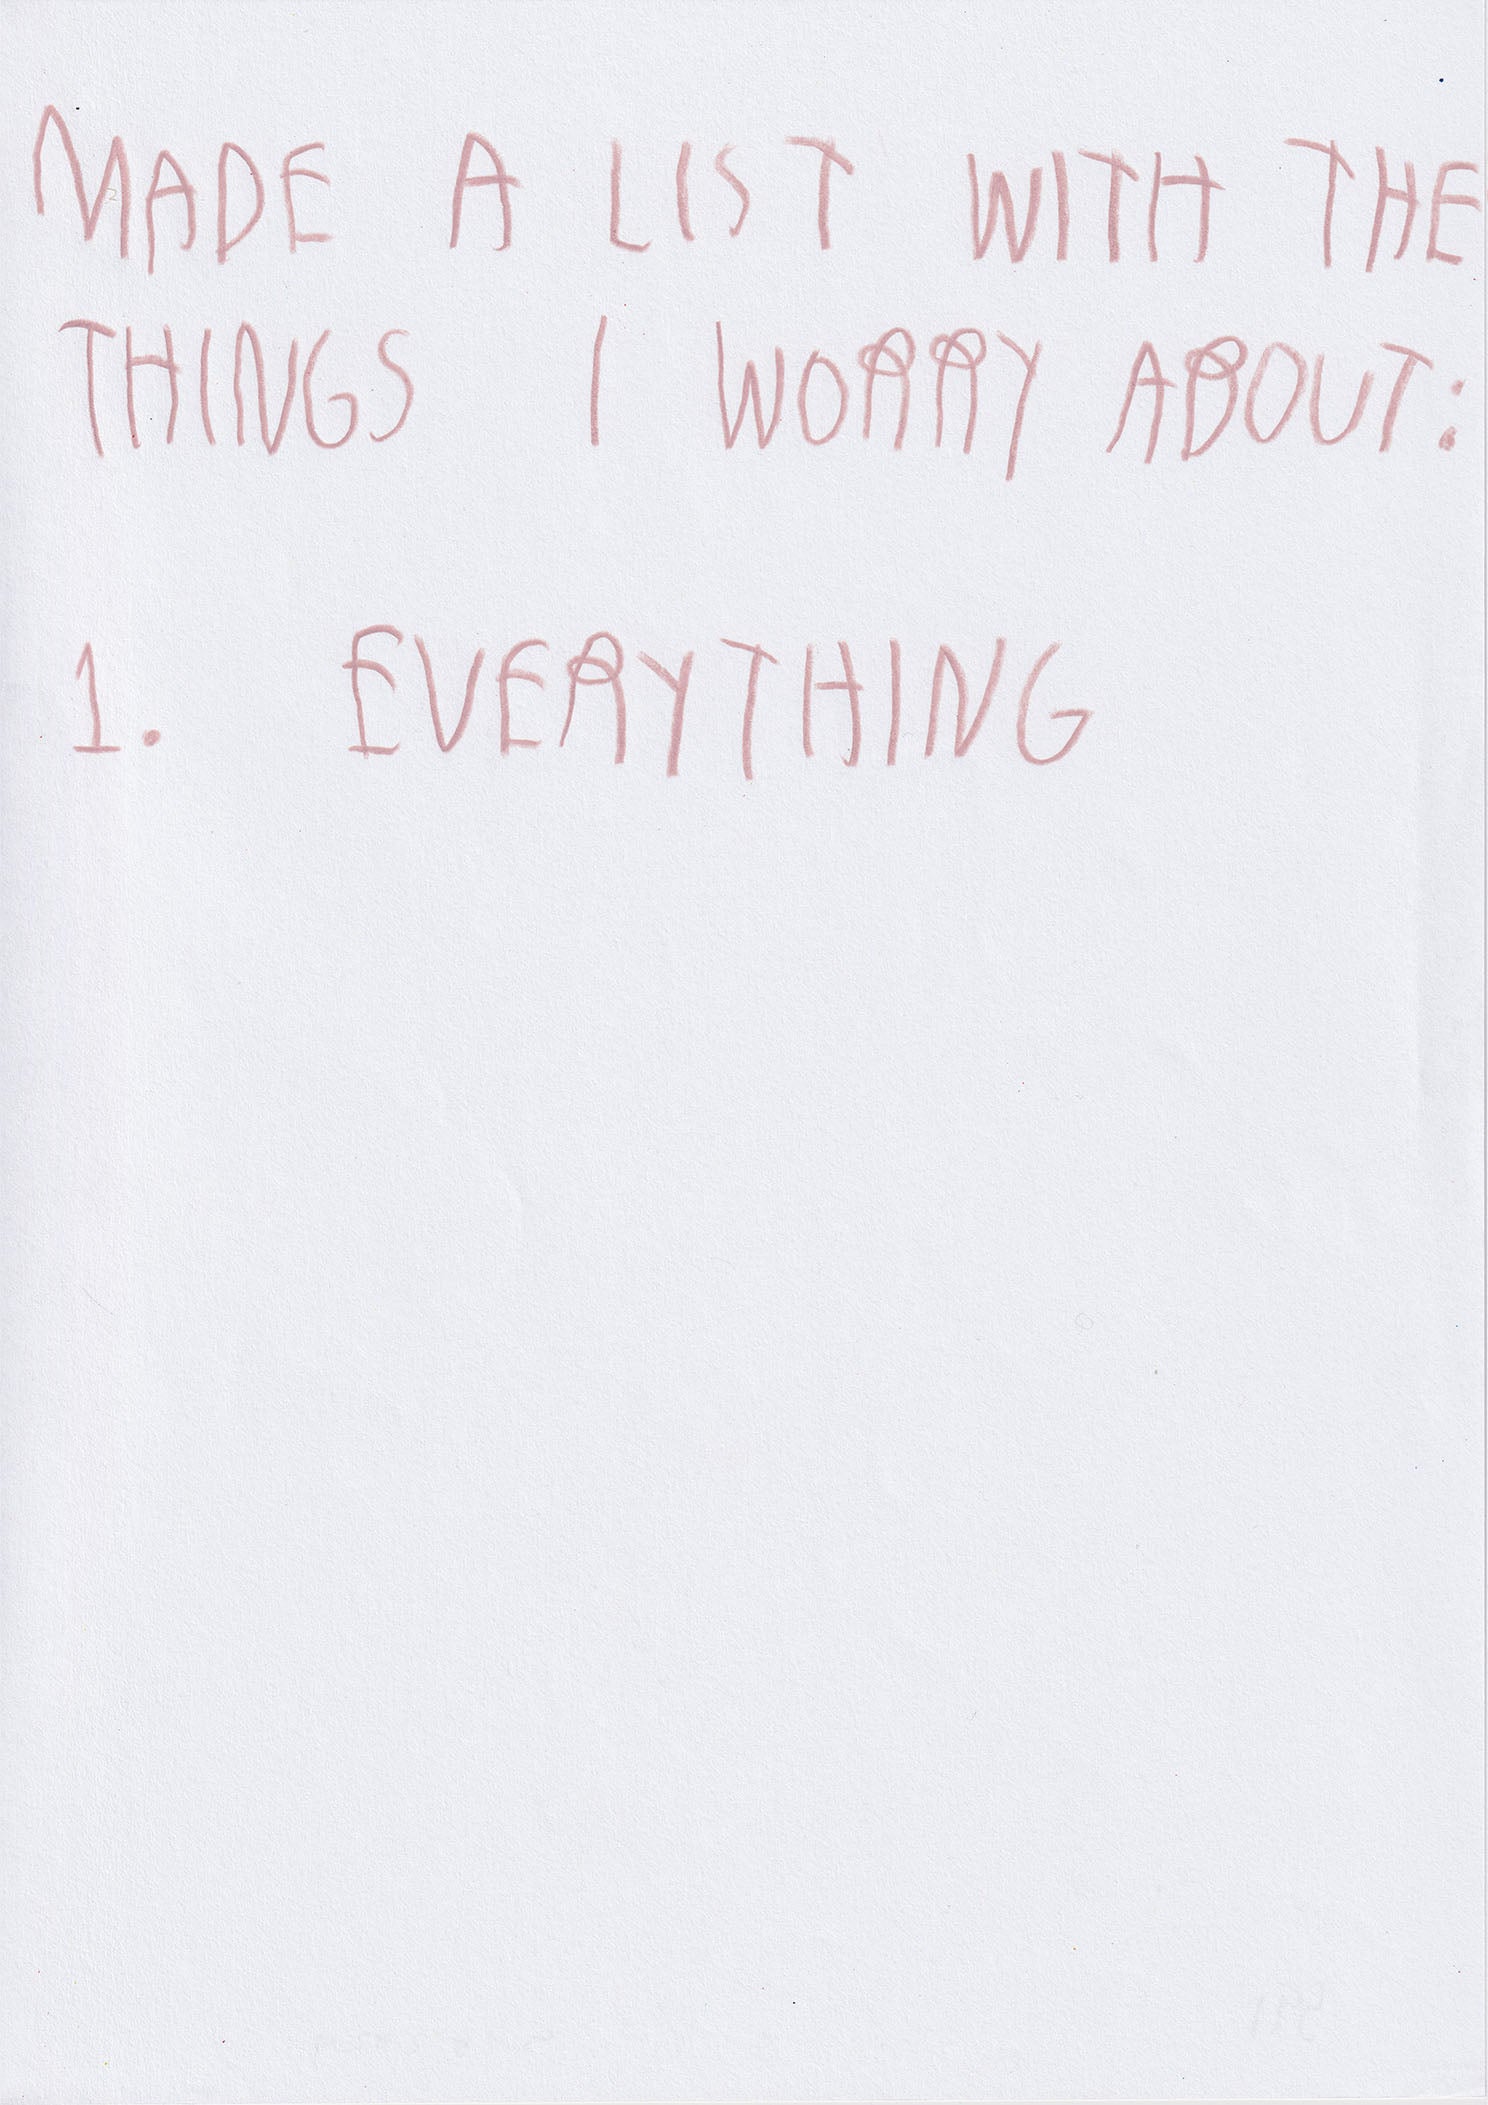 MADE A LIST WITH THE
THINGS I WORRY ABOUT:
1. EVERYTHING